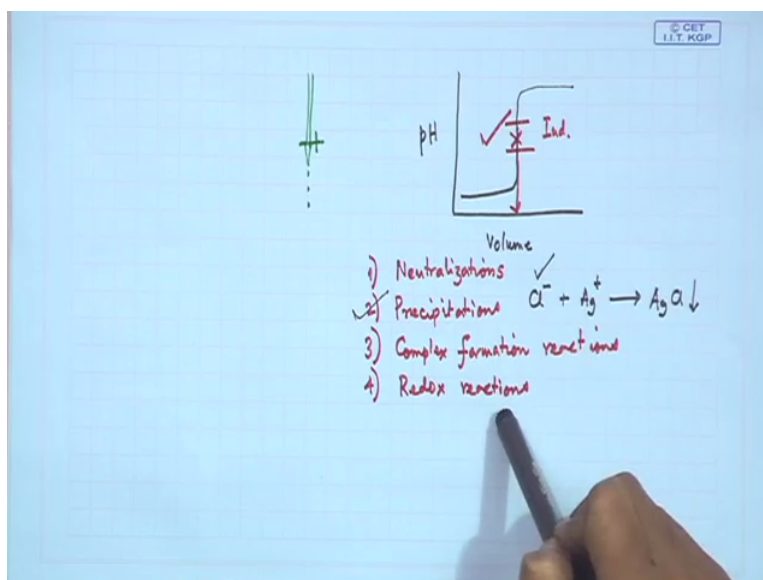 © CET
I.I.T. KGP
pH
Ind.
Volume
1) Neutralizations
2) Precipitations Cl⁻ + Ag⁺ → AgCl↓
3) Complex formation reactions
4) Redox reactions